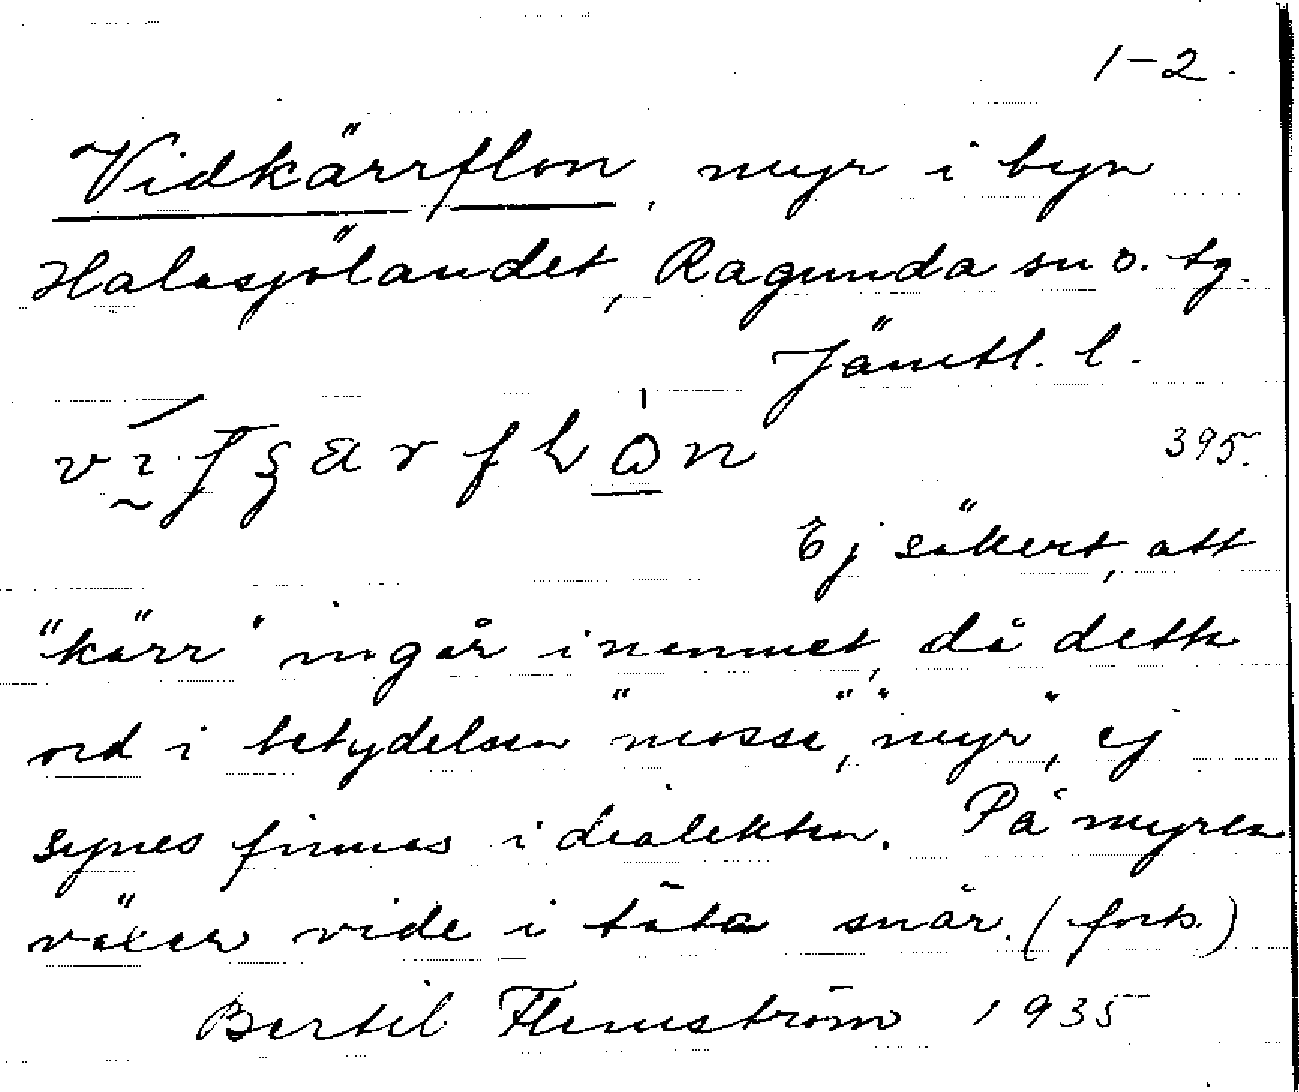 1-2.
Vidkärrflon, myr i byn
Halasjölandet, Ragunda sn o. tg.
Jämtl. l.
395.
Ej säkert, att
"kärr" ingår i namnet, då detta
ord i betydelsen "mosse", "myr", ej
synes finnas i dialekten. På myren
växer vide i täta snår. (forts.)
Bertil Flemström 1935